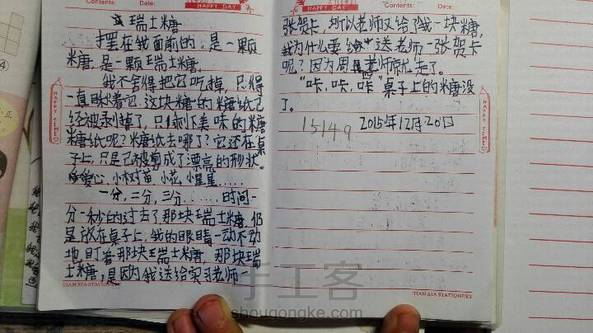 Contents:
Date:
HAPPY DAY
瑞士糖
摆在我面前的,是一颗
糖,是一颗瑞士糖。
我不舍得把它吃掉,只得
一直盯着它。这块糖的糖纸已
经被剥掉了,只剩下美味的糖
糖纸呢?糖纸去哪了?它还在桌
子上,只是已被剪成了漂亮的形状。
爱心,小树苗,小花,小星星……
一分,二分,三分……时间一
分一秒的过去了那块瑞士糖,仍
是放在桌子上,我的眼睛一动不动
地盯着那块瑞士糖,那块瑞
士糖,是因为我送给实习老师一
TIAN JIA STATIONERY
Contents:
HAPPY DAY
张贺卡,所以老师又给了我一块糖,
我为什么要给送老师一张贺卡
呢?因为老师常走了。
“咔,咔,咔”桌子上的糖没
了。
15149 2015年12月20日
TIAN JIA STATIONERY
手工客
shougongke.com